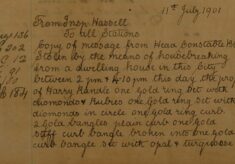 11th July 1901
From Insp Hassell
To all Stations
Copy of message from Head Constable B
Stolen by the means of housebreaking
from a dwelling house in this city
between 2 pm & 4.10 pm this day the prop
of Harry Rankle one gold ring set with
diamonds & Rubies one Gold ring set with
diamonds in circle one gold ring curb
2 gold bangles pearl curb one gold
curb bangle broken into one gold
curb bangle set with opal & turquoise